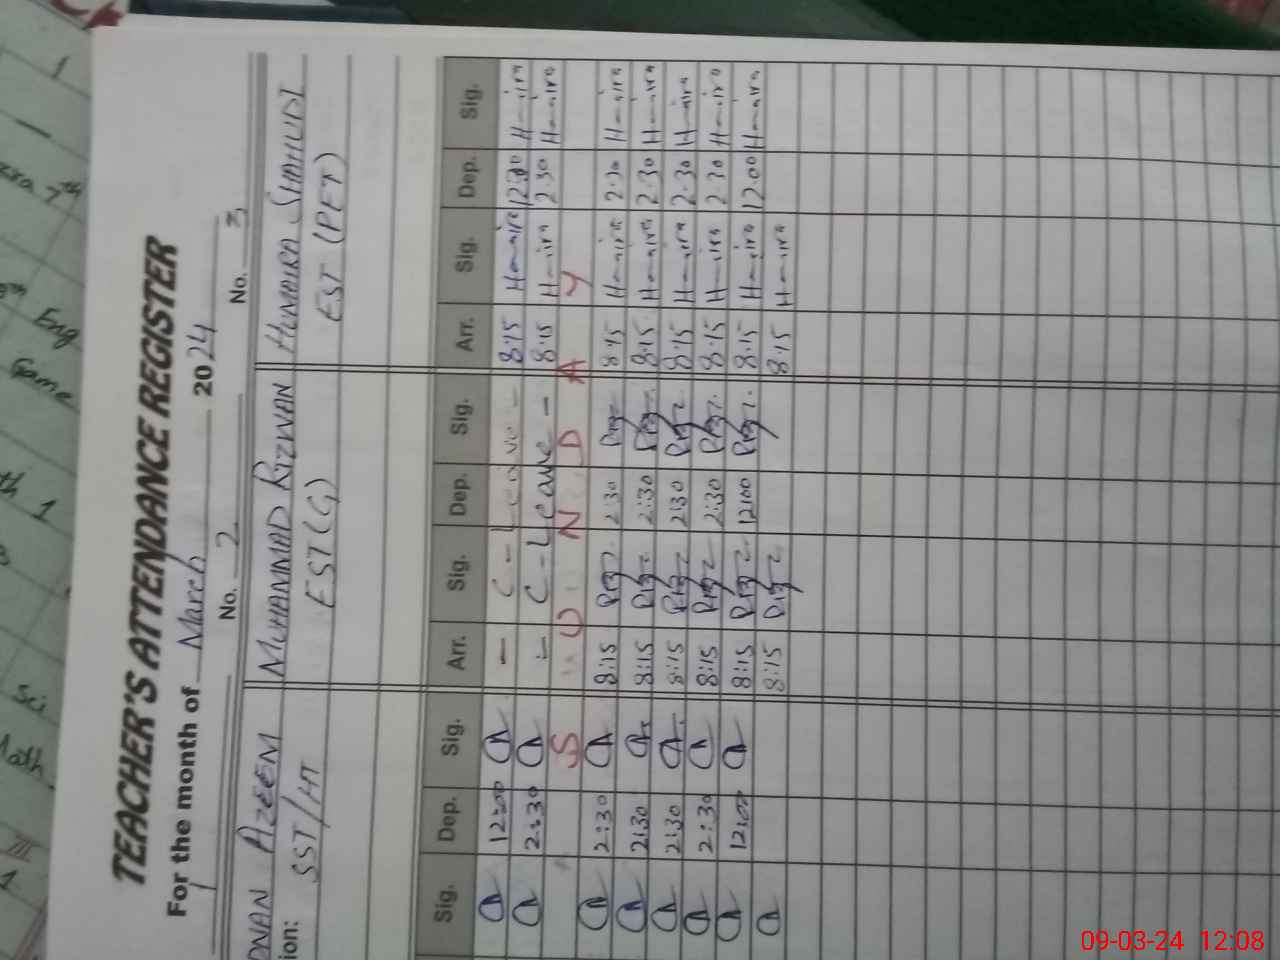 TEACHER'S ATTENDANCE REGISTER
For the month of March 2024
No. 2 No. 3
DNAN AZEEM MUHAMMAD RIZWAN HUMAIRA SHAHIDI
ion: SST/HT EST(G) EST (PET)
Sig. Dep. Sig. Arr. Sig. Dep. Sig. Arr. Sig. Dep. Sig.
12:00 - C - Leave - 8:15 Humaira 12:30 Humaira
2:30 - C - Leave - 8:15 Humaira 2:30 Humaira
S U N D A Y
2:30 8:15 2:30 8:15 Humaira 2:30 Humaira
2:30 8:15 2:30 8:15 Humaira 2:30 Humaira
2:30 8:15 2:30 8:15 Humaira 2:30 Humaira
2:30 8:15 2:30 8:15 Humaira 2:30 Humaira
12:00 8:15 12:00 8:15 Humaira 12:00 Humaira
8:15 8:15 Humaira
Eng
Game
th 1
Sci
Math
09-03-24 12:08